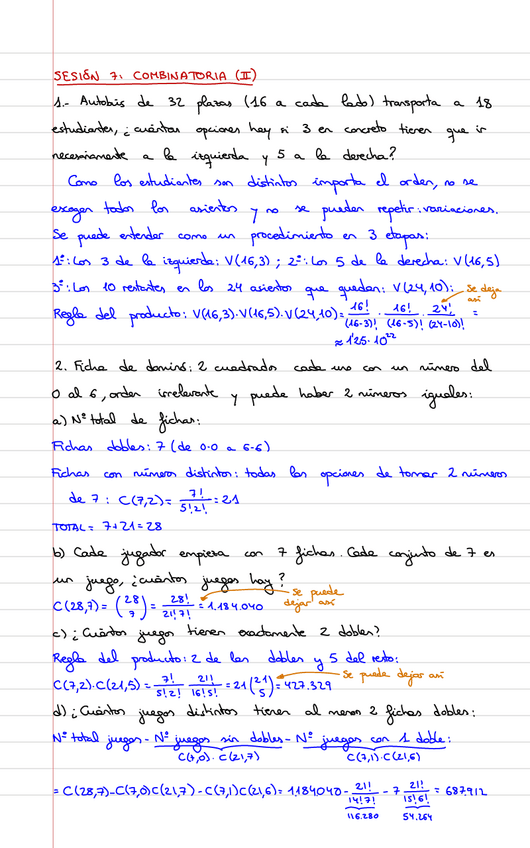 SESIÓN 7: COMBINATORIA (II)
1.- Autobús de 32 plazas (16 a cada lado) transporta a 18
estudiantes, ¿cuántas opciones hay si 3 en concreto tienen que ir
necesariamente a la izquierda y 5 a la derecha?
Como los estudiantes son distintos importa el orden, no se
escogen todos los asientos y no se pueden repetir: variaciones.
Se puede entender como un procedimiento en 3 etapas:
1º: Los 3 de la izquierda: V(16,3) ; 2º: Los 5 de la derecha: V(16,5)
3º: Los 10 restantes en los 24 asientos que quedan: V(24,10):
se deja así
Regla del producto: V(16,3)·V(16,5)·V(24,10) = 16!/(16-3)! · 16!/(16-5)! · 24!/(24-10)! =
≈ 1'25·10²²
2. Ficha de dominó: 2 cuadrados cada uno con un número del
0 al 6, orden irrelevante y puede haber 2 números iguales:
a) Nº total de fichas:
Fichas dobles: 7 (de 0-0 a 6-6)
Fichas con números distintos: todas las opciones de tomar 2 números
de 7: C(7,2) = 7!/5!2! = 21
TOTAL = 7+21 = 28
b) Cada jugador empieza con 7 fichas. Cada conjunto de 7 es
un juego, ¿cuántos juegos hay?
C(28,7) = (28 7) = 28!/21!7! = 1.184.040
se puede dejar así
c) ¿Cuántos juegos tienen exactamente 2 dobles?
Regla del producto: 2 de las dobles y 5 del resto:
C(7,2)·C(21,5) = 7!/5!2! 21!/16!5! = 21 (21 5) = 427.329
Se puede dejar así
d) ¿Cuántos juegos distintos tienen al menos 2 fichas dobles:
Nº total juegos - Nº juegos sin dobles - Nº juegos con 1 doble:
C(7,0)·C(21,7) C(7,1)·C(21,6)
= C(28,7) - C(7,0)C(21,7) - C(7,1)C(21,6) = 1184040 - 21!/14!7! - 7 21!/15!6! = 687.912
116.280 54.264